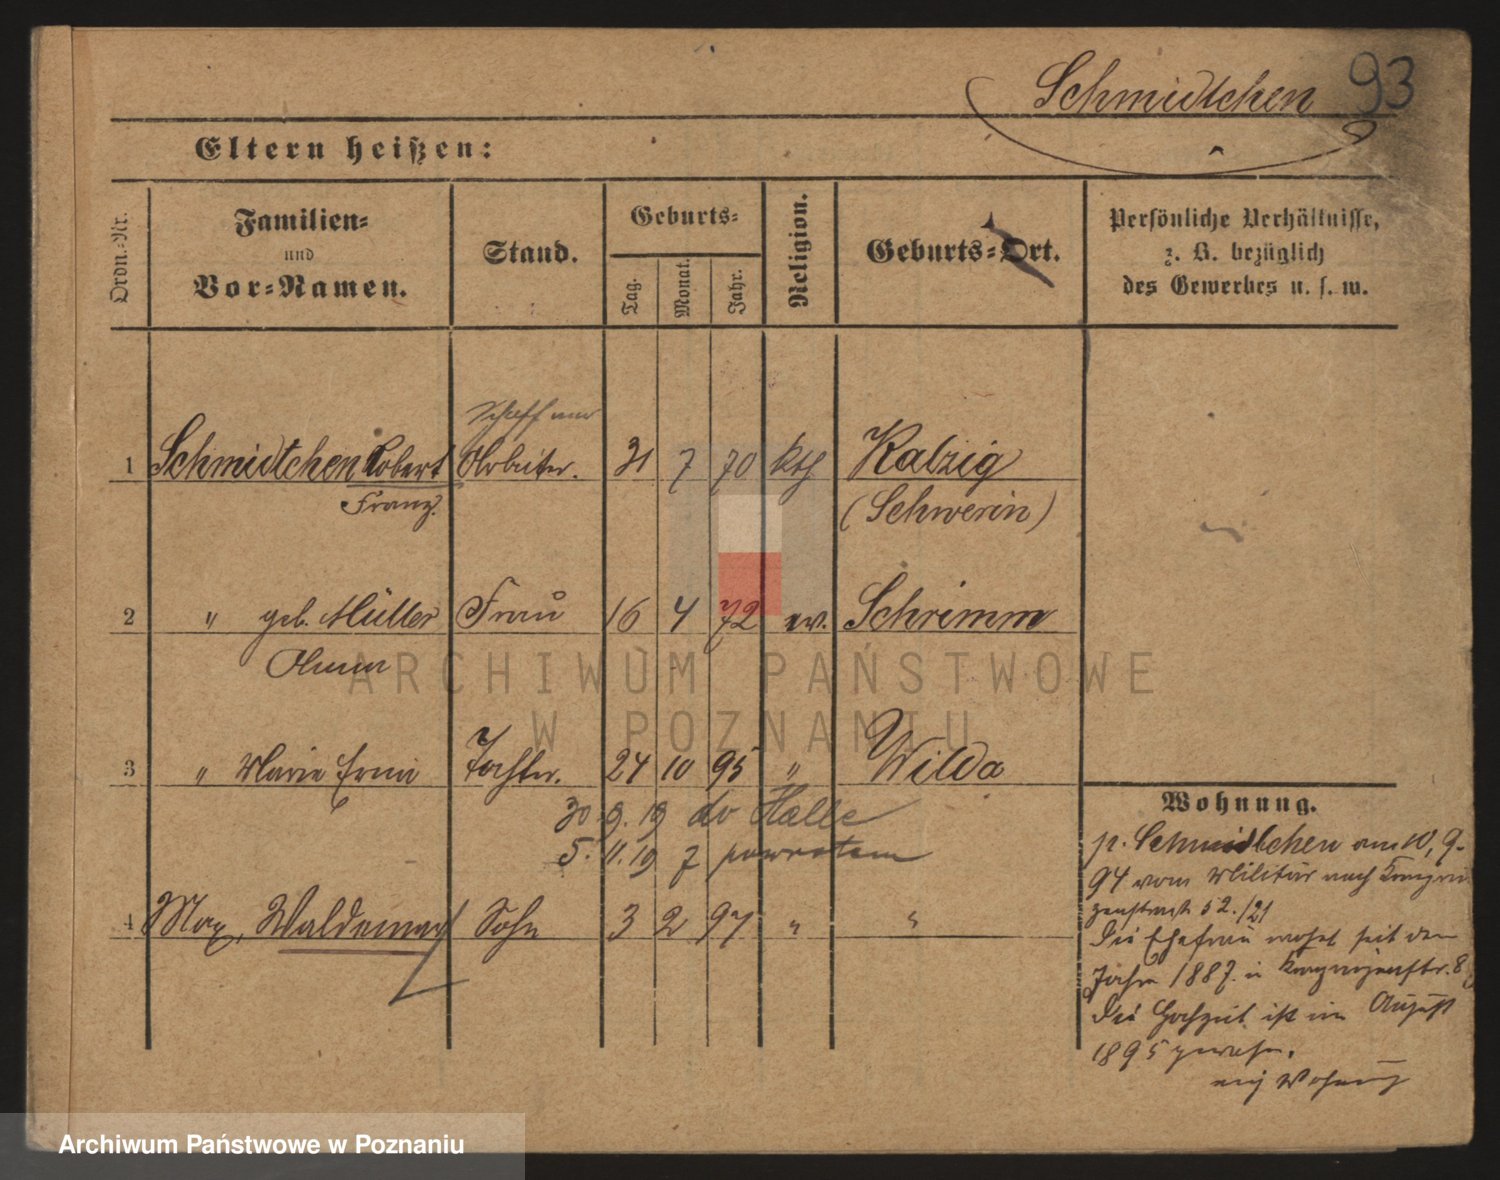 Schmidtchen 93
Eltern heißen:
Ordn.-Nr.
Familien-
und
Vor-Namen.
Stand.
Geburts-
Tag.
Monat.
Jahr.
Religion.
Geburts-Ort.
Persönliche Verhältnisse,
z. B. bezüglich
des Gewerbes u. s. w.
1 Schmidtchen Robert Arbeiter. 31 7 70 kth Kalzig
Franz. (Schwerin)
2 " geb. Müller Frau 16 4 72 ev. Schrimm
ARCHIWUM PAŃSTWOWE
W POZNANIU
3 " Marie Erna Tochter. 24 10 95 " Wilda
30.9.19 do Halle
5.11.19 z powrotem
4 Max, Waldemar Sohn 3 2 97 " "
Wohnung.
p. Schmidtchen am 10, 9.
94 vom Militär nach
52./21
Die Ehefrau wohnt seit dem
Jahre 1887. in
Die Hochzeit ist im August
1895 gewesen.
Archiwum Państwowe w Poznaniu